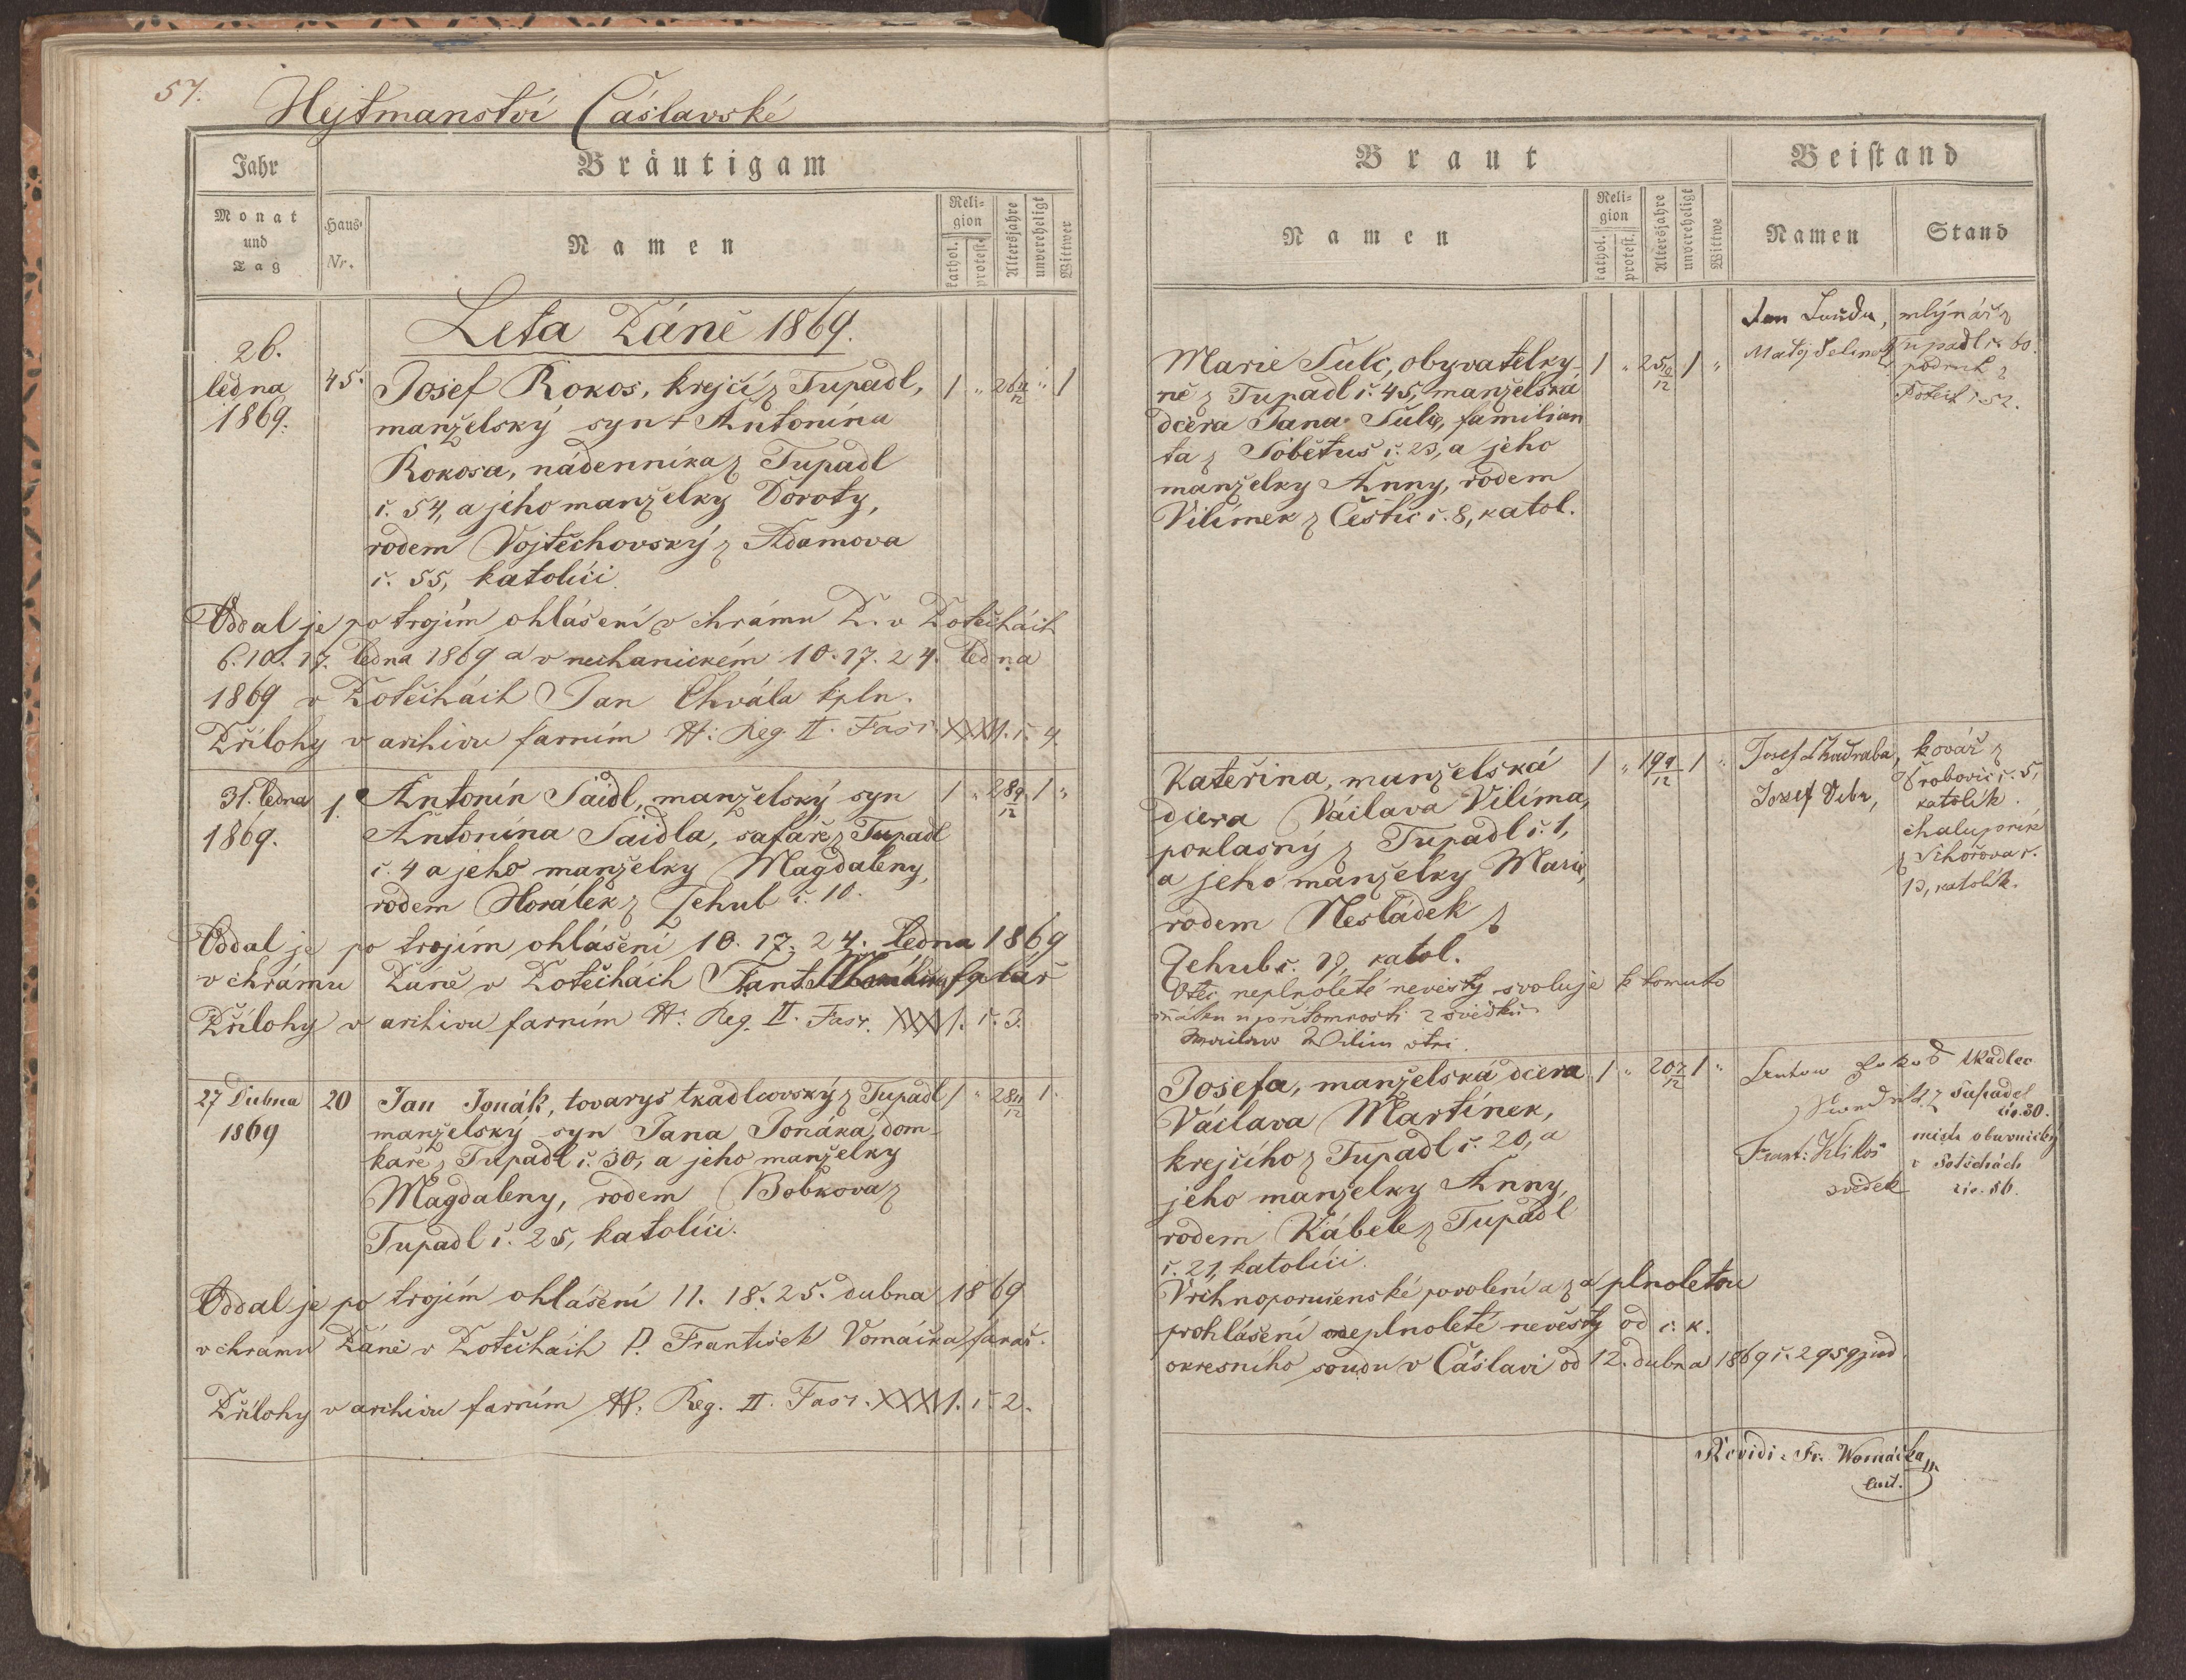 57.
Hejtmanství Čáslavské
Jahr
Bräutigam
Monat
und
Tag
Haus-
Nr.
Namen
Reli-
gion
kathol.
protest.
Altersjahre
unvereheligt
Wittwer
Leta Páně 1869.
26.
ledna
1869.
45.
Josef Rokos, krejčí z Tupadl,
manželský syn † Antonína
Rokosa, nádenníka z Tupadl
č. 54, a jeho manželky Doroty,
rodem Vojtěchovský z Adamova
č. 55, katolíci.
1 " 26 11/12 " 1
Oddal je po trojím ohlášení v chrámu P. v Potěchách
6. 10. 17. ledna 1869 a v nechanickém 10. 17. 24. ledna
1869 v Potěchách Jan Chvála kpln.
Přílohy v archivu farním H: Reg. II. Fasc. XXXVI. č. 4.
31. ledna
1869.
1.
Antonín Saidl, manželský syn
Antonína Saidla, šafáře z Tupadl
č. 4 a jeho manželky Magdaleny,
rodem Horálek z Zehub č. 10.
1 " 28 9/12 1 "
Oddal je po trojím ohlášení 10. 17. 24. ledna 1869
v chrámu Páně v Potěchách Frant. Vomáčka farář
Přílohy v archivu farním H: Reg. II. Fasc. XXXVI. č. 3.
27 Dubna
1869
20
Jan Jonák, tovaryš tkadlcovský z Tupadl
manželský syn Jana Jonáka, dom-
kaře z Tupadl č. 30, a jeho manželky
Magdaleny, rodem Bobkova z
Tupadl č. 25, katolíci.
1 " 28 11/12 1 "
Oddal je po trojím ohlášení 11. 18. 25. dubna 1869
v chrámu Páně v Potěchách P. František Vomáčka farář.
Přílohy v archivu farním H. Reg. II. Fasc. XXXVI. č. 2.
Braut
Beistand
Namen
Reli-
gion
kathol.
protest.
Altersjahre
unvereheligt
Wittwe
Namen
Stand
Marie Šulc, obyvatelky-
ně z Tupadl č. 45, manželská
dcera Jana Šulc, familian
ta z Sobětuš č. 23, a jeho
manželky Anny, rodem
Vilímek z Čestic č. 8, katol.
1 " 25 10/12 1 "
Jan Louda, mlýnář z
Tupadl č. 60.
Matěj Jelinek, podruh z
Potěch č 52.
Kateřina, manželská
dcera Václava Vilíma,
poklasný z Tupadl č. 1,
a jeho manželky Marie,
rodem Nesládek z
Zehub č. 19, katol.
1 " 19 9/12 1 "
Josef Škaďraba, kovář z
Vrobovic č. 5,
katolík.
Josef Vrba, chalupník
z Schořova č.
13, katolík.
Otec neplnoleté nevěsty svoluje k tomuto
sňatku u přítomnosti 2 svědků.
Wácslaw Wilím otec.
Josefa, manželská dcera
Václava Martínek,
krejčího z Tupadl č. 20, a
jeho manželky Anny,
rodem Kábele z Tupadl
č. 21, katolíci.
1 " 20 7/12 1 "
tkadlec
z Tupadel
čis. 30.
Frant: Klikoš
svědek
mistr obuvnický
v Potěchách
čis. 56.
Vrchnoporučenské povolení a za plnoletou
prohlášení neplnoleté nevěsty od c. k.
okresního soudu v Čáslavi od 12. dubna 1869 č. 2959 jud.
Revidi: Fr. Womáčka